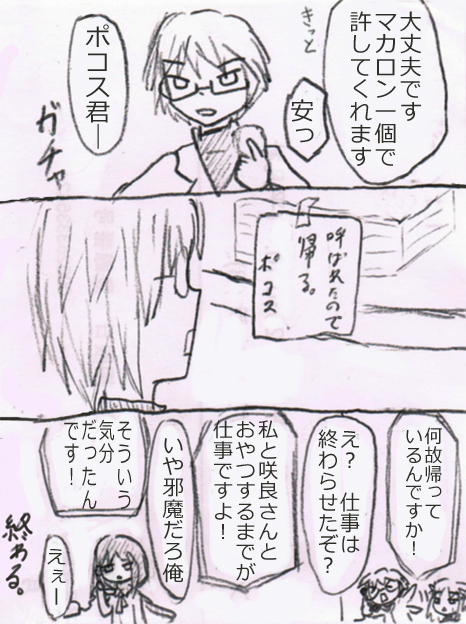 大丈夫です
マカロン一個で
許してくれます
きっと
安っ
ポコス君ー
ガチャ
呼ばれたので
帰る。
ポコス
何故帰って
いるんですか!
え? 仕事は
終わらせたぞ?
私と咲良さんと
おやつするまでが
仕事ですよ!
いや邪魔だろ俺
そういう
気分
だったん
です!
えぇー
終わる。